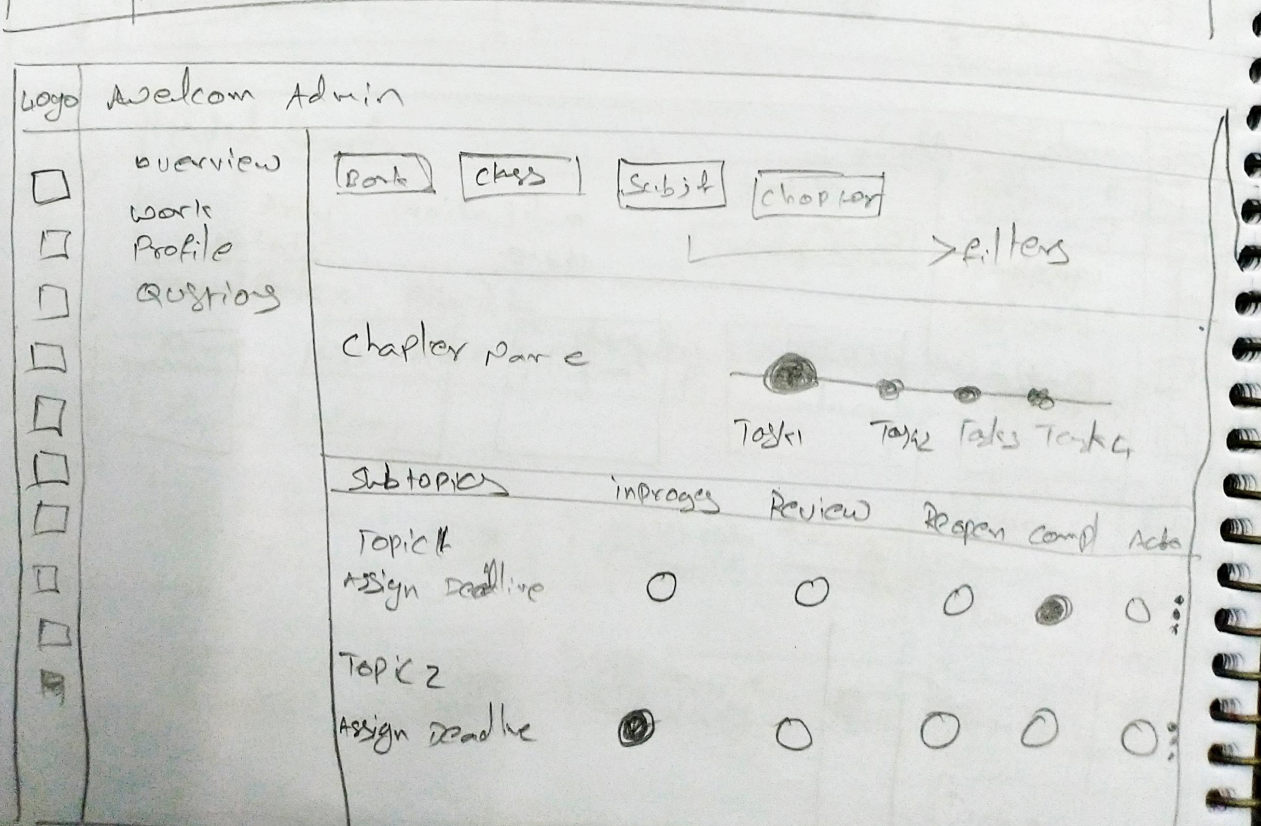 Logo Welcom Admin
overview
Work
Profile
Qustions
Class
Subjt
Chapter
filters
Chapter Name
Task1 Task2 Task3 Task4
Subtopics inproges Review Reopen compl
Topic 1
Assign Deadline
Topic 2
Assign Deadline